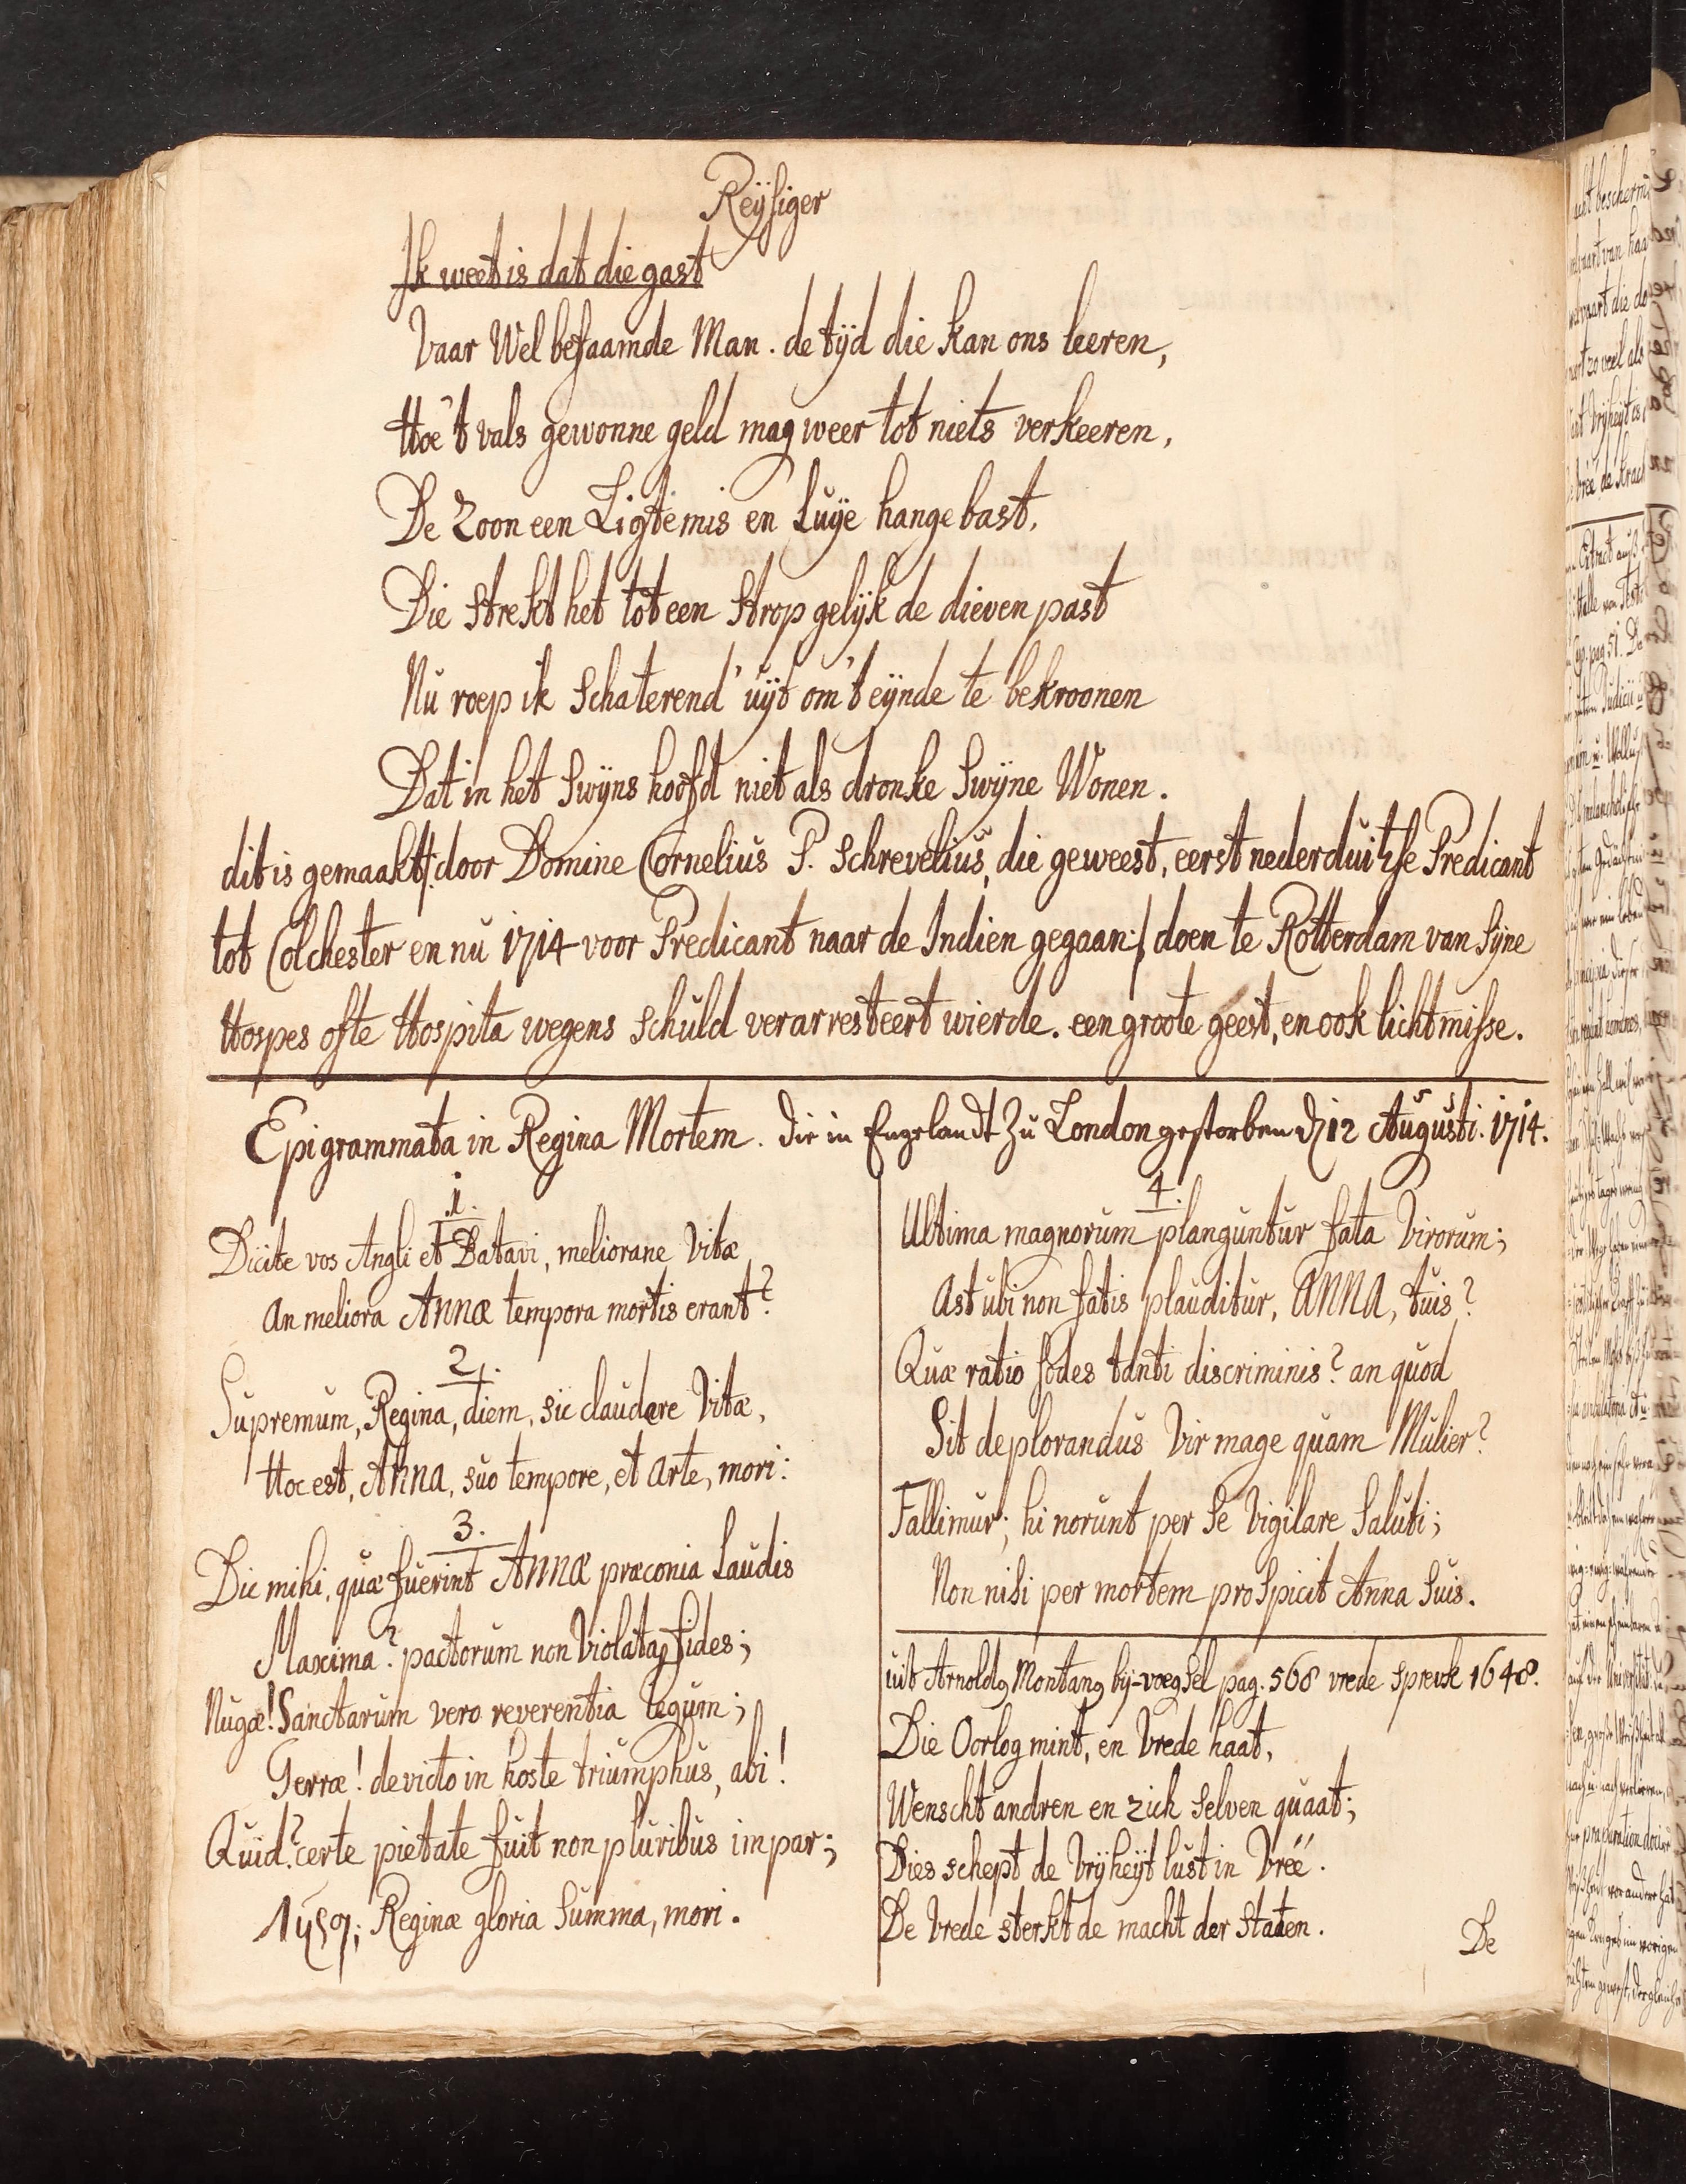 Reÿsiger
Ik weet is dat die gast
Vaar Wel befaamde Man. de tÿd die kan ons leeren,
Hoe 't vals gewonne geld mag weer tot niets verkeeren,
De Zoon een Ligtemis en Luÿe hangebast,
Die strekt het tot een strop gelÿk de dieven past
Nu roep ik schaterend' uÿt om 't eÿnde te bekroonen
Dat in het Swÿns hoofd niet als dronke Swÿne Wonen.
dit is gemaakt /: door Domine Cornelius P. Schrevelius, die geweest, eerst nederduitze Predicant
tot Colchester en nu 1714 voor Predicant naar de Indien gegaan :/ doen te Rotterdam van Sÿne
Hospes ofte Hospita wegens schuld verarresteert wierde. een groote geest, en ook lichtmisse.
Epigrammata in Regina Mortem. die in Engelandt zu London gestorben d 12 Augusti. 1714.
1.
Dicite vos Angli et Batavi, meliorane Vitæ
An meliora Annæ tempora mortis erant?
2.
Supremum, Regina, diem, sic claudere Vitæ,
Hoc est, Anna, suo tempore, et arte, mori:
3.
Dic mihi, quæ fuerint Annæ præconia Laudis
Maxima? pactorum non Violata fides;
Nugæ! Sanctarum vero reverentia legum;
Gerræ! devicto in hoste triumphus, abi!
Quid? certe pietate fuit non pluribus impar;
Reginæ gloria Summa, mori.
4.
Ultima magnorum planguntur fata Virorum;
Ast ubi non fatis plauditur, ANNA, tuis?
Quæ ratio sodes tanti discriminis? an quod
Sit deplorandus Vir mage quam Mulier?
Fallimur; hi norunt per se Vigilare Saluti;
Non nisi per mortem prospicit Anna Suis.
uit Arnoldg Montang bÿ-voegsel pag. 568 vrede spreuk 1648.
Die Oorlog mint, en Vrede haat,
Wenscht andren en zich selven quaat;
Dies schept de Vrÿheÿt lust in Vreé.
De Vrede sterkt de macht der Staten.
De